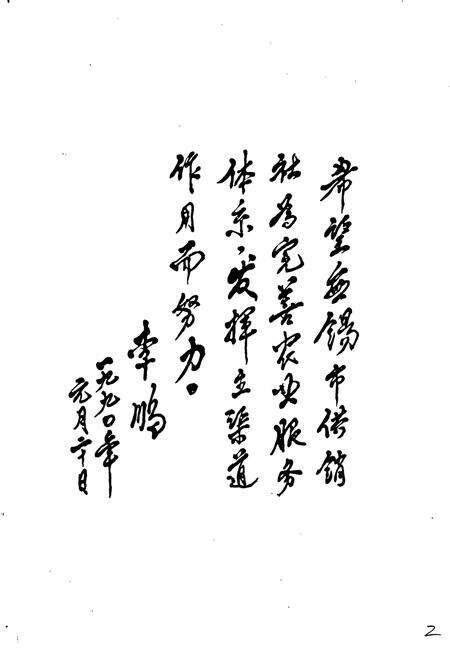 希望无锡市供销
社为完善农业服务
体系，发挥主渠道
作用而努力。
李鹏
一九九〇年
元月二十日
2